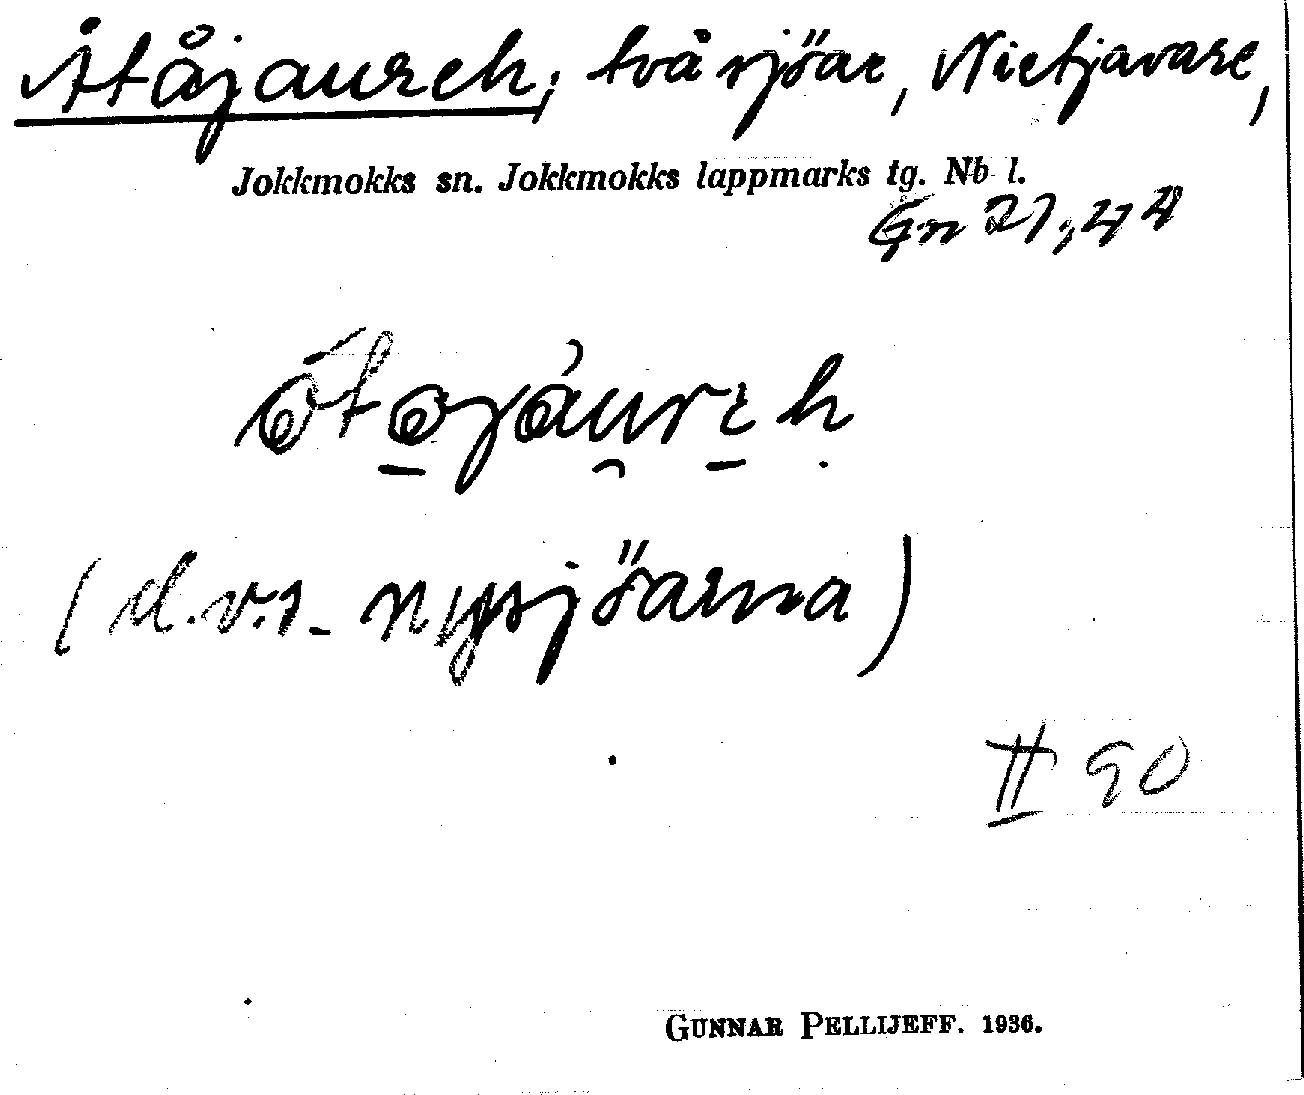 Åtåjaureh; två sjöar, Nietjavare,
Jokkmokks sn. Jokkmokks lappmarks tg. Nb l.
Gn 27; 44
(d.v.s. nysjöarna)
II 90
GUNNAR PELLIJEFF. 1936.